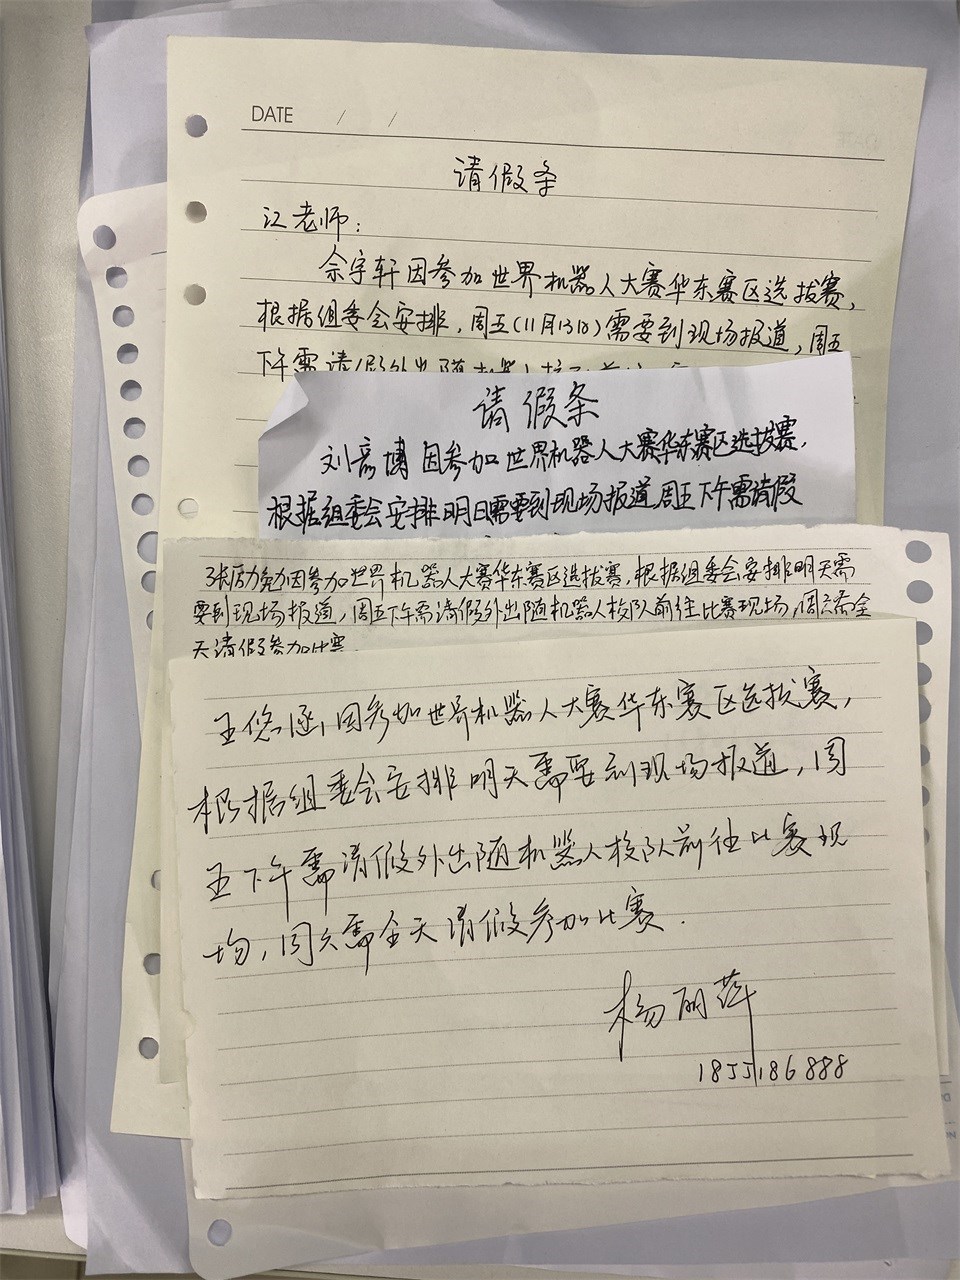 DATE / /
请假条
江老师:
佘宇轩因参加世界机器人大赛华东赛区选拔赛,
根据组委会安排,周五(11月13日)需要到现场报道,周五
下午需请假外出随机器人校队前往
请假条
刘彦博因参加世界机器人大赛华东赛区选拔赛.
根据组委会安排明日需要到现场报道,周五下午需请假
张励勉因参加世界机器人大赛华东赛区选拔赛,根据组委会安排明天需
要到现场报道,周五下午需请假外出随机器人校队前往比赛现场,周六需全
天请假参加比赛
王悠涵,因参加世界机器人大赛华东赛区选拔赛,
根据组委会安排明天需要到现场报道,周
五下午需请假外出随机器人校队前往比赛现
场,周六需全天请假参加比赛.
杨丽萍
1855186888